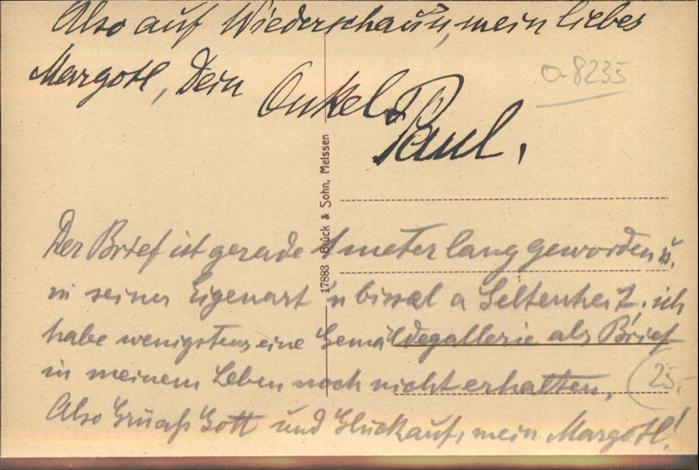 Also auf Wiederschau'n, mein liebes
Margotl, Dein Onkel
Paul.
0-8235
17883 Brück & Sohn, Meissen
Der Brief ist gerade 1 meter lang geworden u.
in seiner Eigenart 'n bissel a Seltenheit, ich
habe wenigstens eine Gemäldegallerie als Brief
in meinem Leben noch nicht erhalten,
25,-
Also Grüaß Gott und Glückauf, mein Margotl!